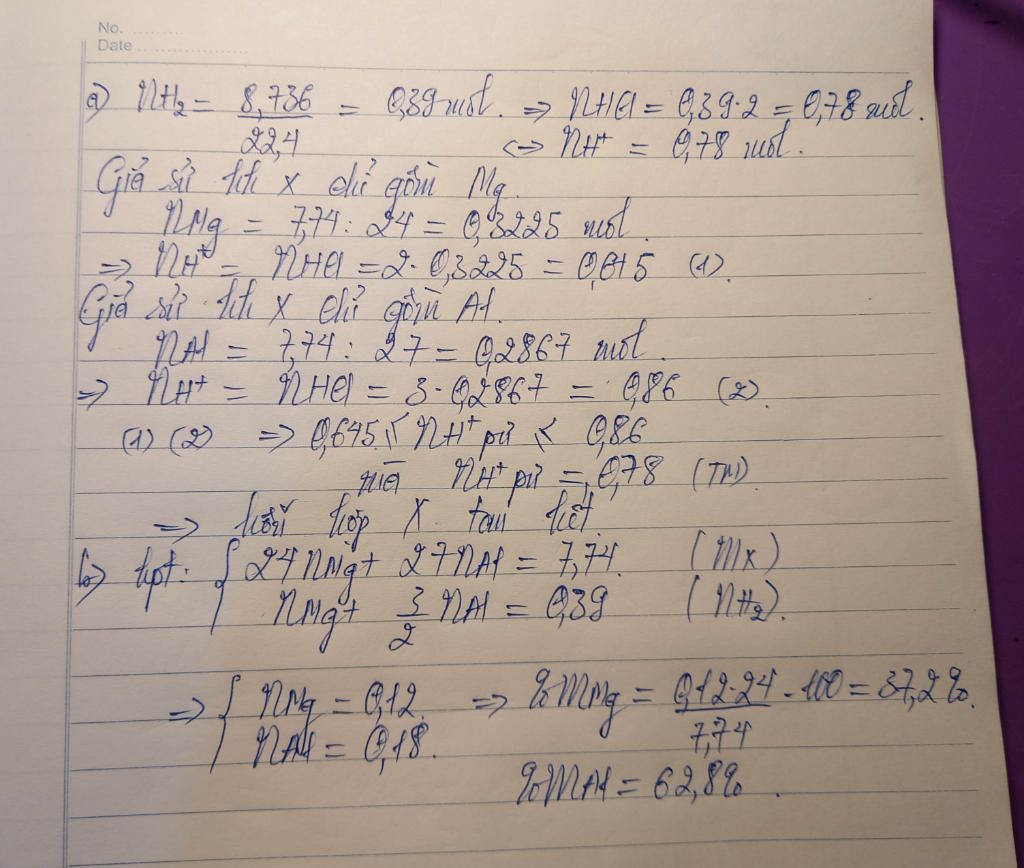 No.
Date
a) nH₂ = 8,736/22,4 = 0,39 mol. ⇒ nHCl = 0,39·2 = 0,78 mol.
<=> nH⁺ = 0,78 mol.
Giả sử hh X chỉ gồm Mg.
nMg = 7,74 : 24 = 0,3225 mol.
⇒ nH⁺ = nHCl = 2·0,3225 = 0,645 (1).
Giả sử hh X chỉ gồm Al.
nAl = 7,74 : 27 = 0,2867 mol.
⇒ nH⁺ = nHCl = 3·0,2867 = 0,86 (2).
(1) (2) ⇒ 0,645 ≤ nH⁺ pứ ≤ 0,86
mà nH⁺ pứ = 0,78 (TM).
⇒ hỗn hợp X tan hết.
b) hpt: { 24nMg + 27nAl = 7,74. (mX)
nMg + 3/2 nAl = 0,39 (nH₂).
⇒ { nMg = 0,12. ⇒ %mMg = 0,12·24/7,74 · 100 = 37,2%.
nAl = 0,18.
%mAl = 62,8%.